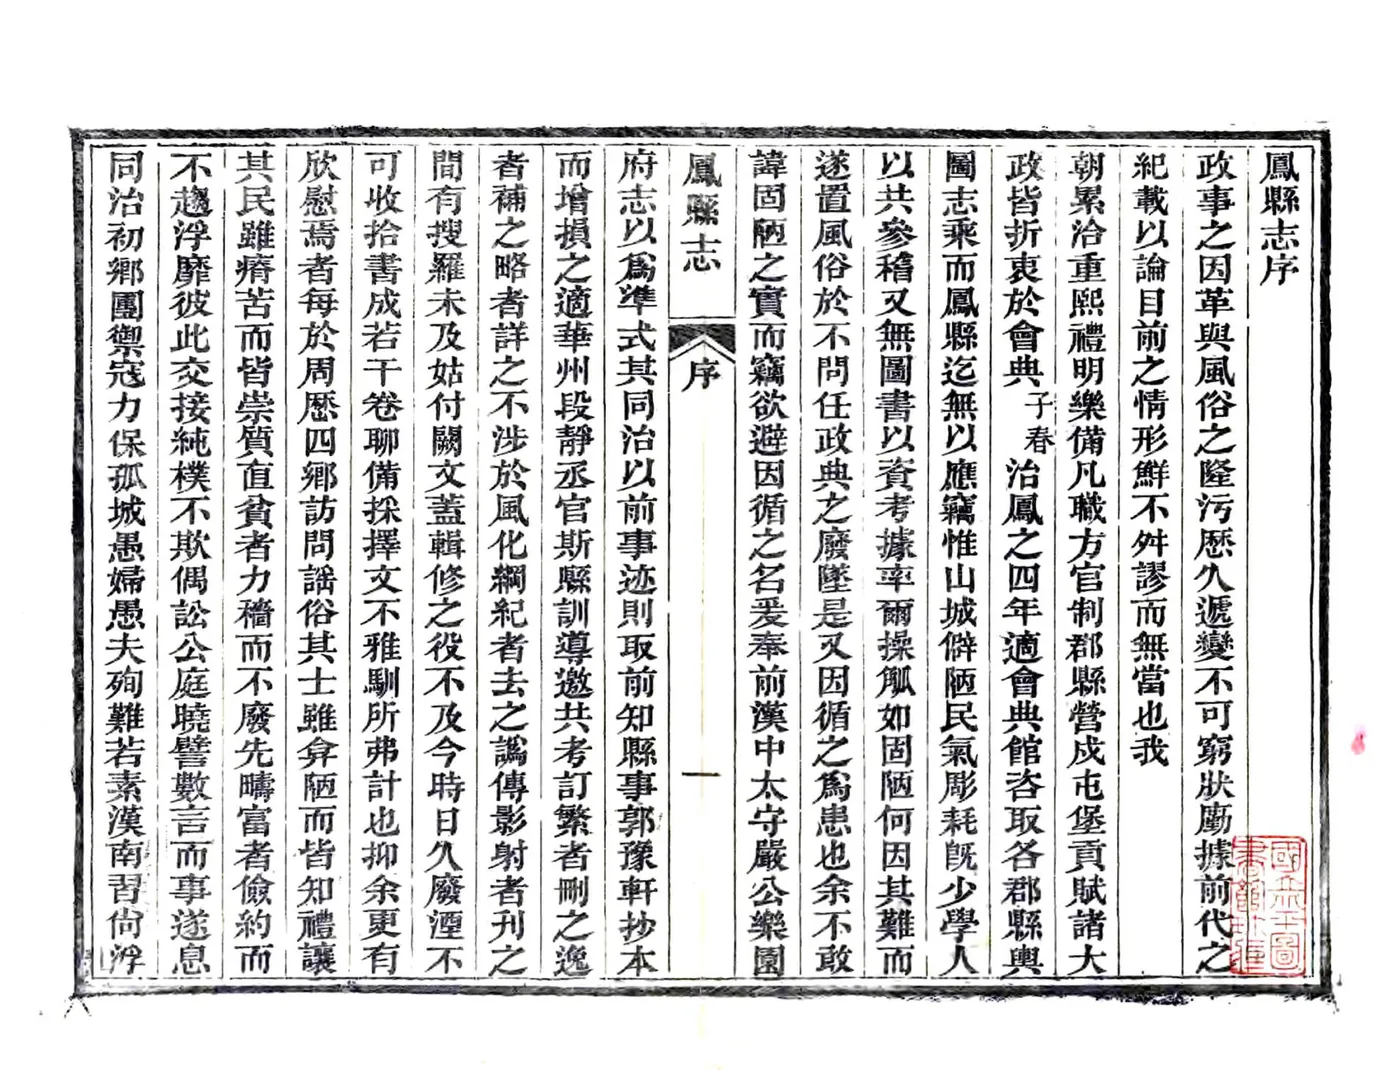 鳳縣志序
政事之因革與風俗之隆污歷久遞變不可窮狀勵據前代之
紀載以論目前之情形鮮不舛謬而無當也我
朝累洽重熙禮明樂備凡職方官制郡縣營戍屯堡貢賦諸大
政皆折衷於會典子春治鳳之四年適會典館咨取各郡縣輿
圖志乘而鳳縣迄無以應竊惟山城僻陋民氣彫耗旣少學人
以共參稽又無圖書以資考據率爾操觚如固陋何因其難而
遂置風俗於不問任政典之廢墜是又因循之爲患也余不敢
諱固陋之實而竊欲避因循之名爰奉前漢中太守嚴公樂園
鳳縣志
序
一
府志以爲準式其同治以前事迹則取前知縣事郭豫軒抄本
而增損之適華州段靜丞官斯縣訓導邀共考訂繁者刪之逸
者補之略者詳之不涉於風化綱紀者去之譌傳影射者刊之
間有搜羅未及姑付闕文蓋輯修之役不及今時日久廢湮不
可收拾書成若干卷聊備採擇文不雅馴所弗計也抑余更有
欣慰焉者每於周歷四鄉訪問謡俗其士雖弇陋而皆知禮讓
其民雖瘠苦而皆崇質直貧者力穡而不廢先疇富者儉約而
不趨浮靡彼此交接純樸不欺偶訟公庭曉譬數言而事遂息
同治初鄉團禦寇力保孤城愚婦愚夫殉難若素漢南習尙浮